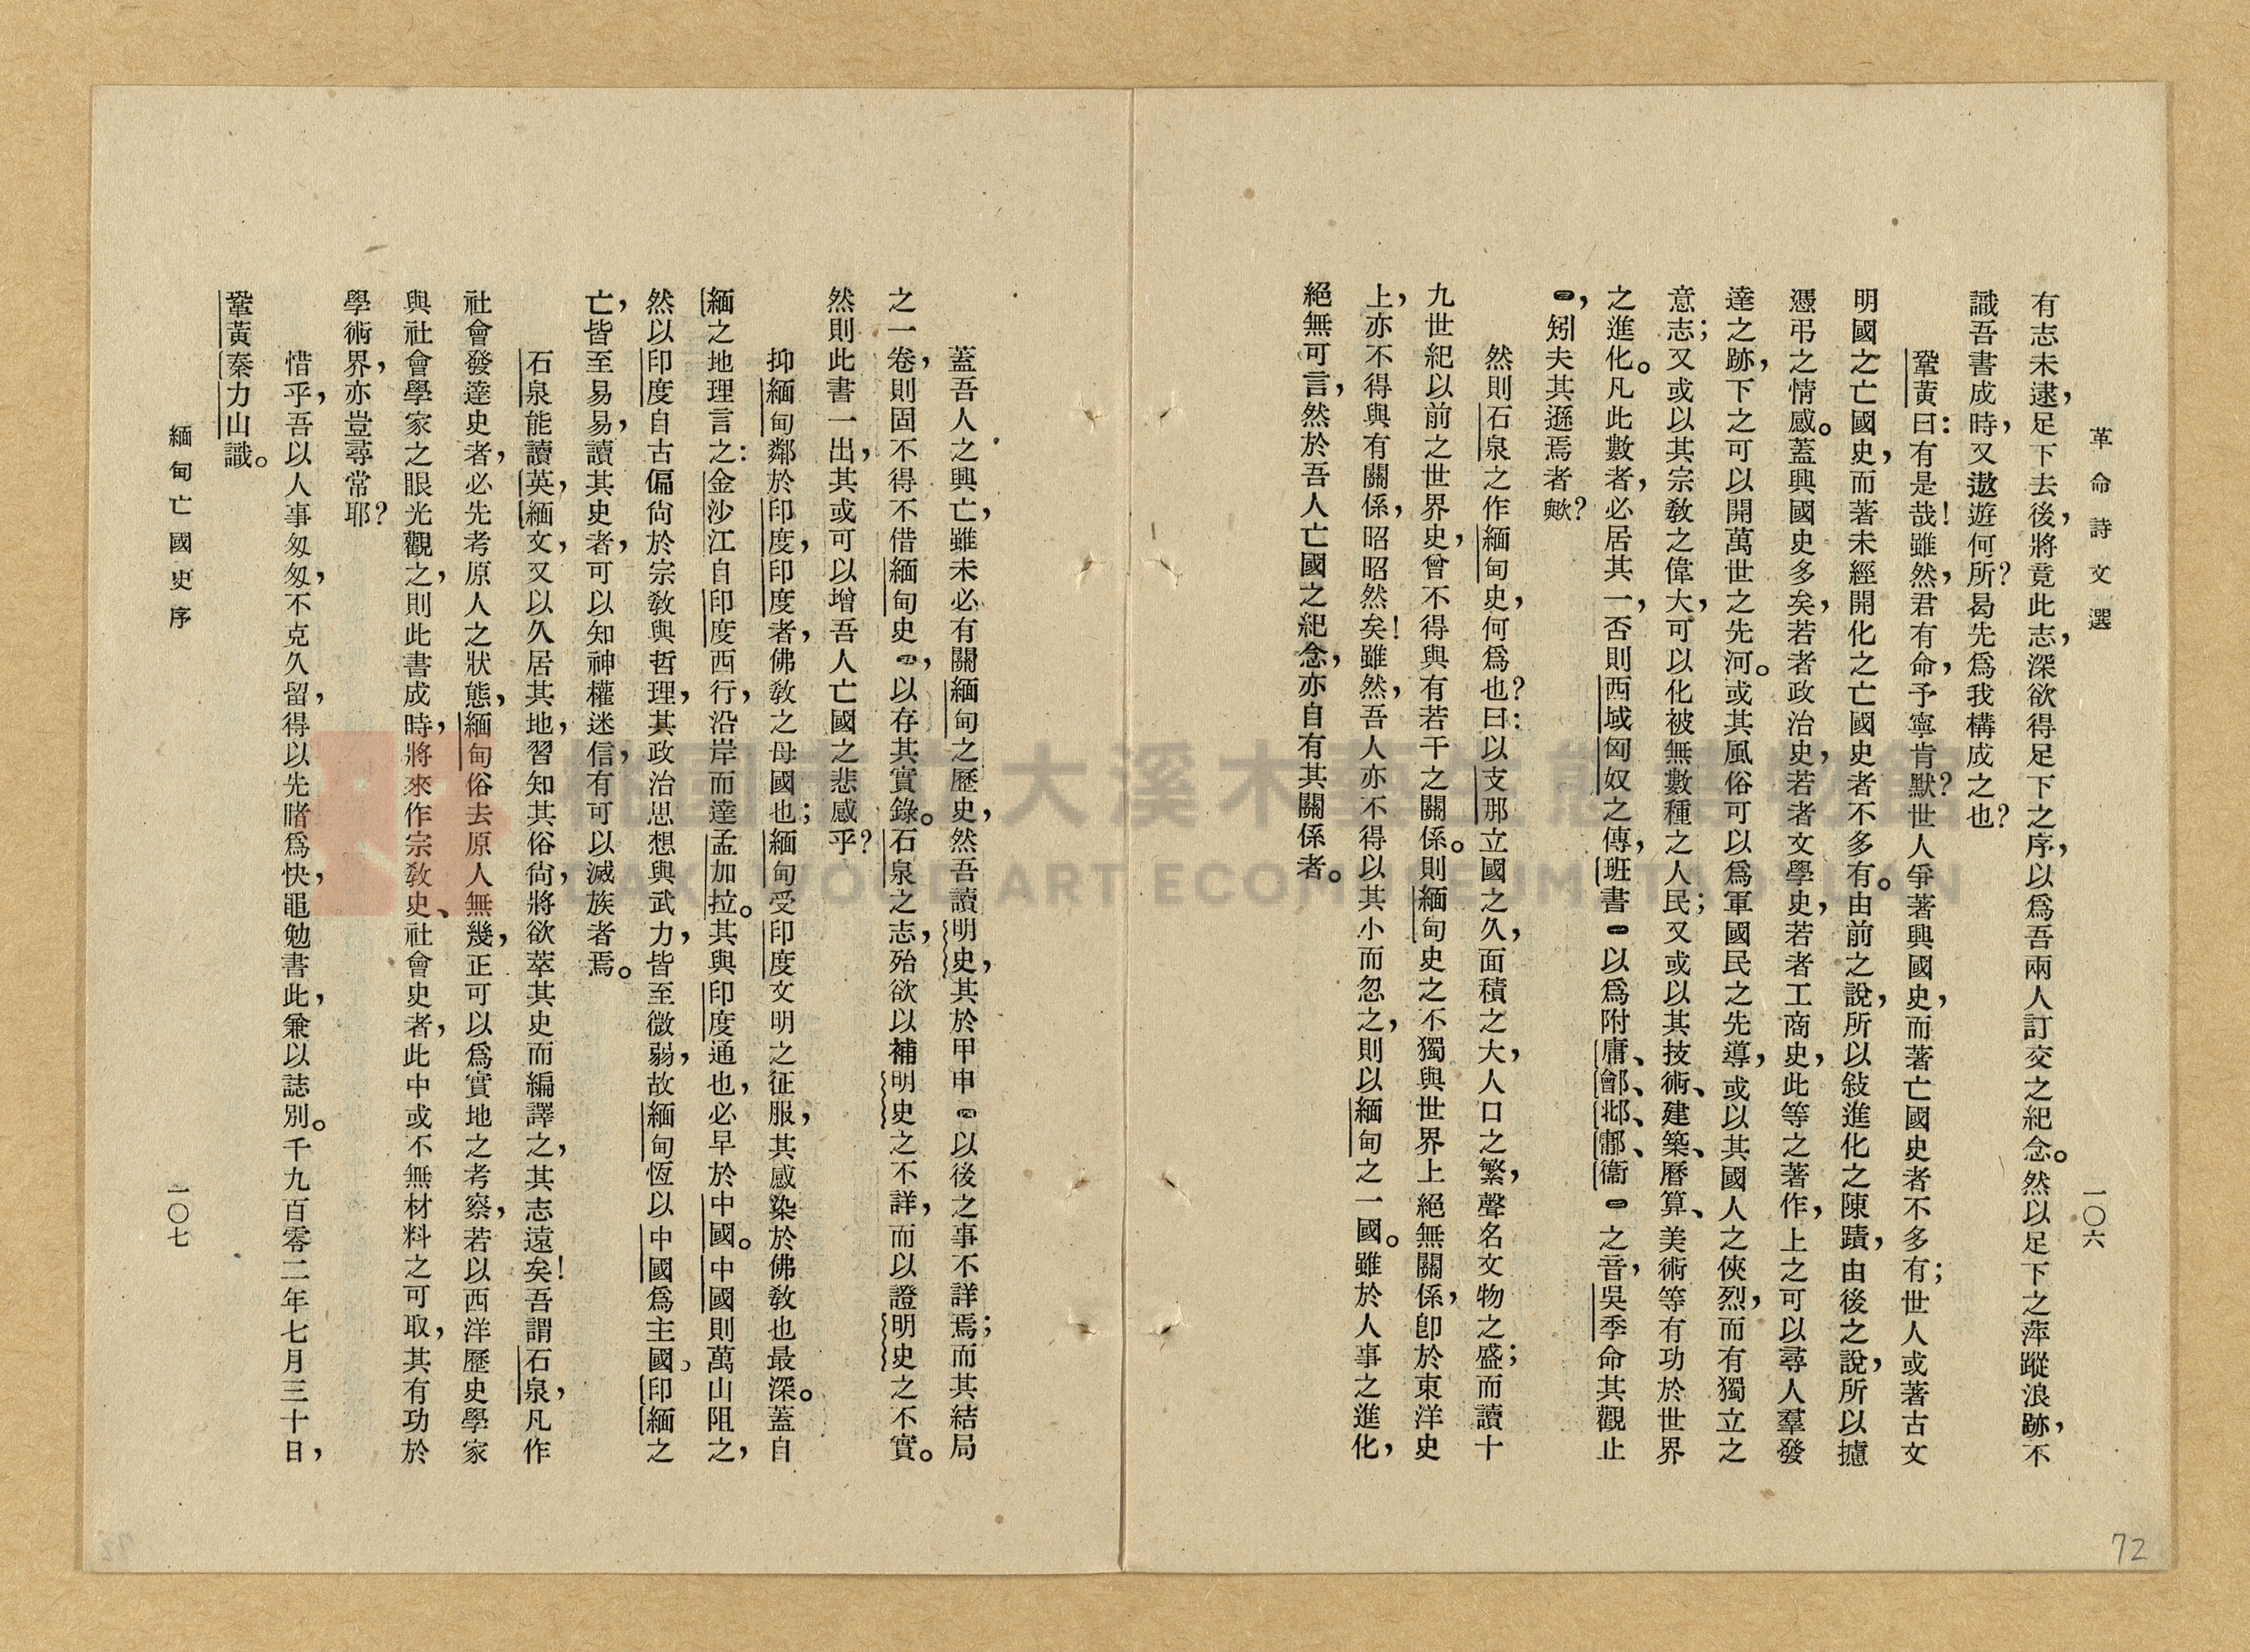 革命詩文選
一〇六
有志未逮，足下去後，將竟此志，深欲得足下之序，以爲吾兩人訂交之紀念。然以足下之萍蹤浪跡，不
識吾書成時，又遨遊何所？曷先爲我構成之也？
鞏黃曰：有是哉！雖然，君有命，予寧肯默？世人爭著興國史，而著亡國史者不多有；世人或著古文
明國之亡國史，而著未經開化之亡國史者不多有。由前之說，所以敍進化之陳蹟，由後之說，所以攄
憑弔之情感。蓋興國史多矣，若者政治史，若者文學史，若者工商史，此等之著作，上之可以尋人羣發
達之跡，下之可以開萬世之先河。或其風俗可以爲軍國民之先導，或以其國人之俠烈，而有獨立之
意志；又或以其宗敎之偉大，可以化被無數種之人民；又或以其技術、建築、曆算、美術等有功於世界
之進化。凡此數者，必居其一，否則西域匈奴之傳，班書㊀以爲附庸、鄶、邶、鄘、衞㊁之音，吳季命其觀止
㊂，矧夫其遜焉者歟？
然則石泉之作緬甸史，何爲也？曰：以支那立國之久，面積之大，人口之繁，聲名文物之盛；而讀十
九世紀以前之世界史，曾不得與有若干之關係。則緬甸史之不獨與世界上絕無關係，卽於東洋史
上，亦不得與有關係，昭昭然矣！雖然，吾人亦不得以其小而忽之，則以緬甸之一國。雖於人事之進化，
絕無可言，然於吾人亡國之紀念，亦自有其關係者。
72
蓋吾人之興亡，雖未必有關緬甸之歷史，然吾讀明史，其於甲申㊃以後之事不詳焉；而其結局
之一卷，則固不得不借緬甸史㊄，以存其實錄。石泉之志，殆欲以補明史之不詳，而以證明史之不實。
然則此書一出，其或可以增吾人亡國之悲感乎？
抑緬甸鄰於印度，印度者，佛敎之母國也；緬甸受印度文明之征服，其感染於佛敎也最深。蓋自
緬之地理言之：金沙江自印度西行，沿岸而達孟加拉。其與印度通也，必早於中國。中國則萬山阻之，
然以印度自古偏尙於宗敎與哲理，其政治思想與武力，皆至微弱，故緬甸恆以中國爲主國，印緬之
亡，皆至易易，讀其史者，可以知神權迷信，有可以滅族者焉。
石泉能讀英，緬文，又以久居其地，習知其俗尙，將欲萃其史而編譯之，其志遠矣！吾謂石泉，凡作
社會發達史者，必先考原人之狀態，緬甸俗去原人無幾，正可以爲實地之考察，若以西洋歷史學家
與社會學家之眼光觀之，則此書成時，將來作宗敎史、社會史者，此中或不無材料之可取，其有功於
學術界，亦豈尋常耶？
惜乎，吾以人事匆匆，不克久留，得以先睹爲快，黽勉書此，兼以誌別。千九百零二年七月三十日，
鞏黃秦力山識。
緬甸亡國史序
一〇七
桃園市立大溪木藝生態博物館
DAXI WOOD ART ECOMUSEUM, TAOYUAN